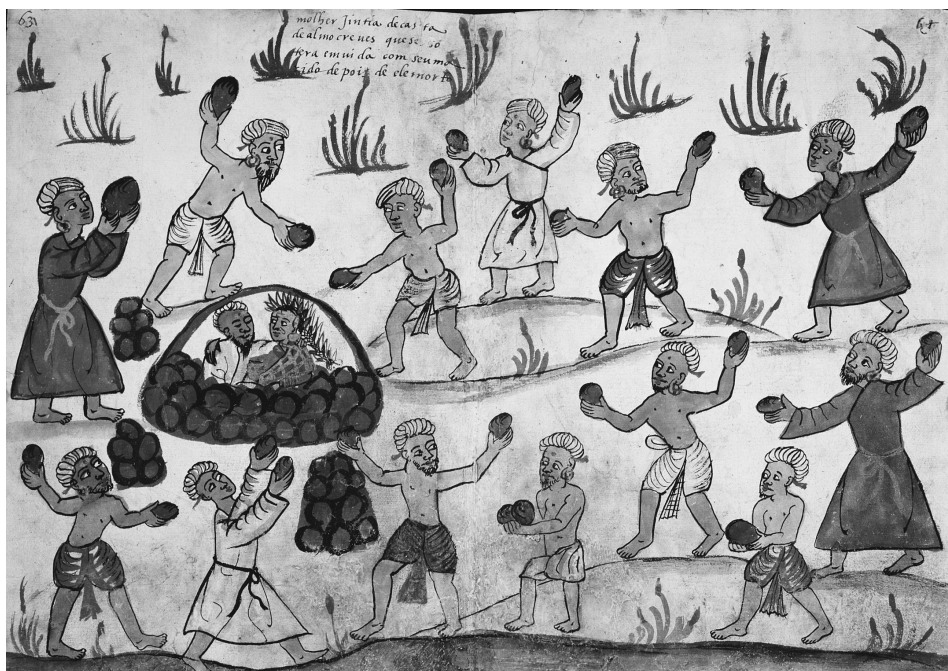 63
64
molher Jintia de cas ta
de almocreves que se so
tera em vida com seu ma
rido de pois de ele morto